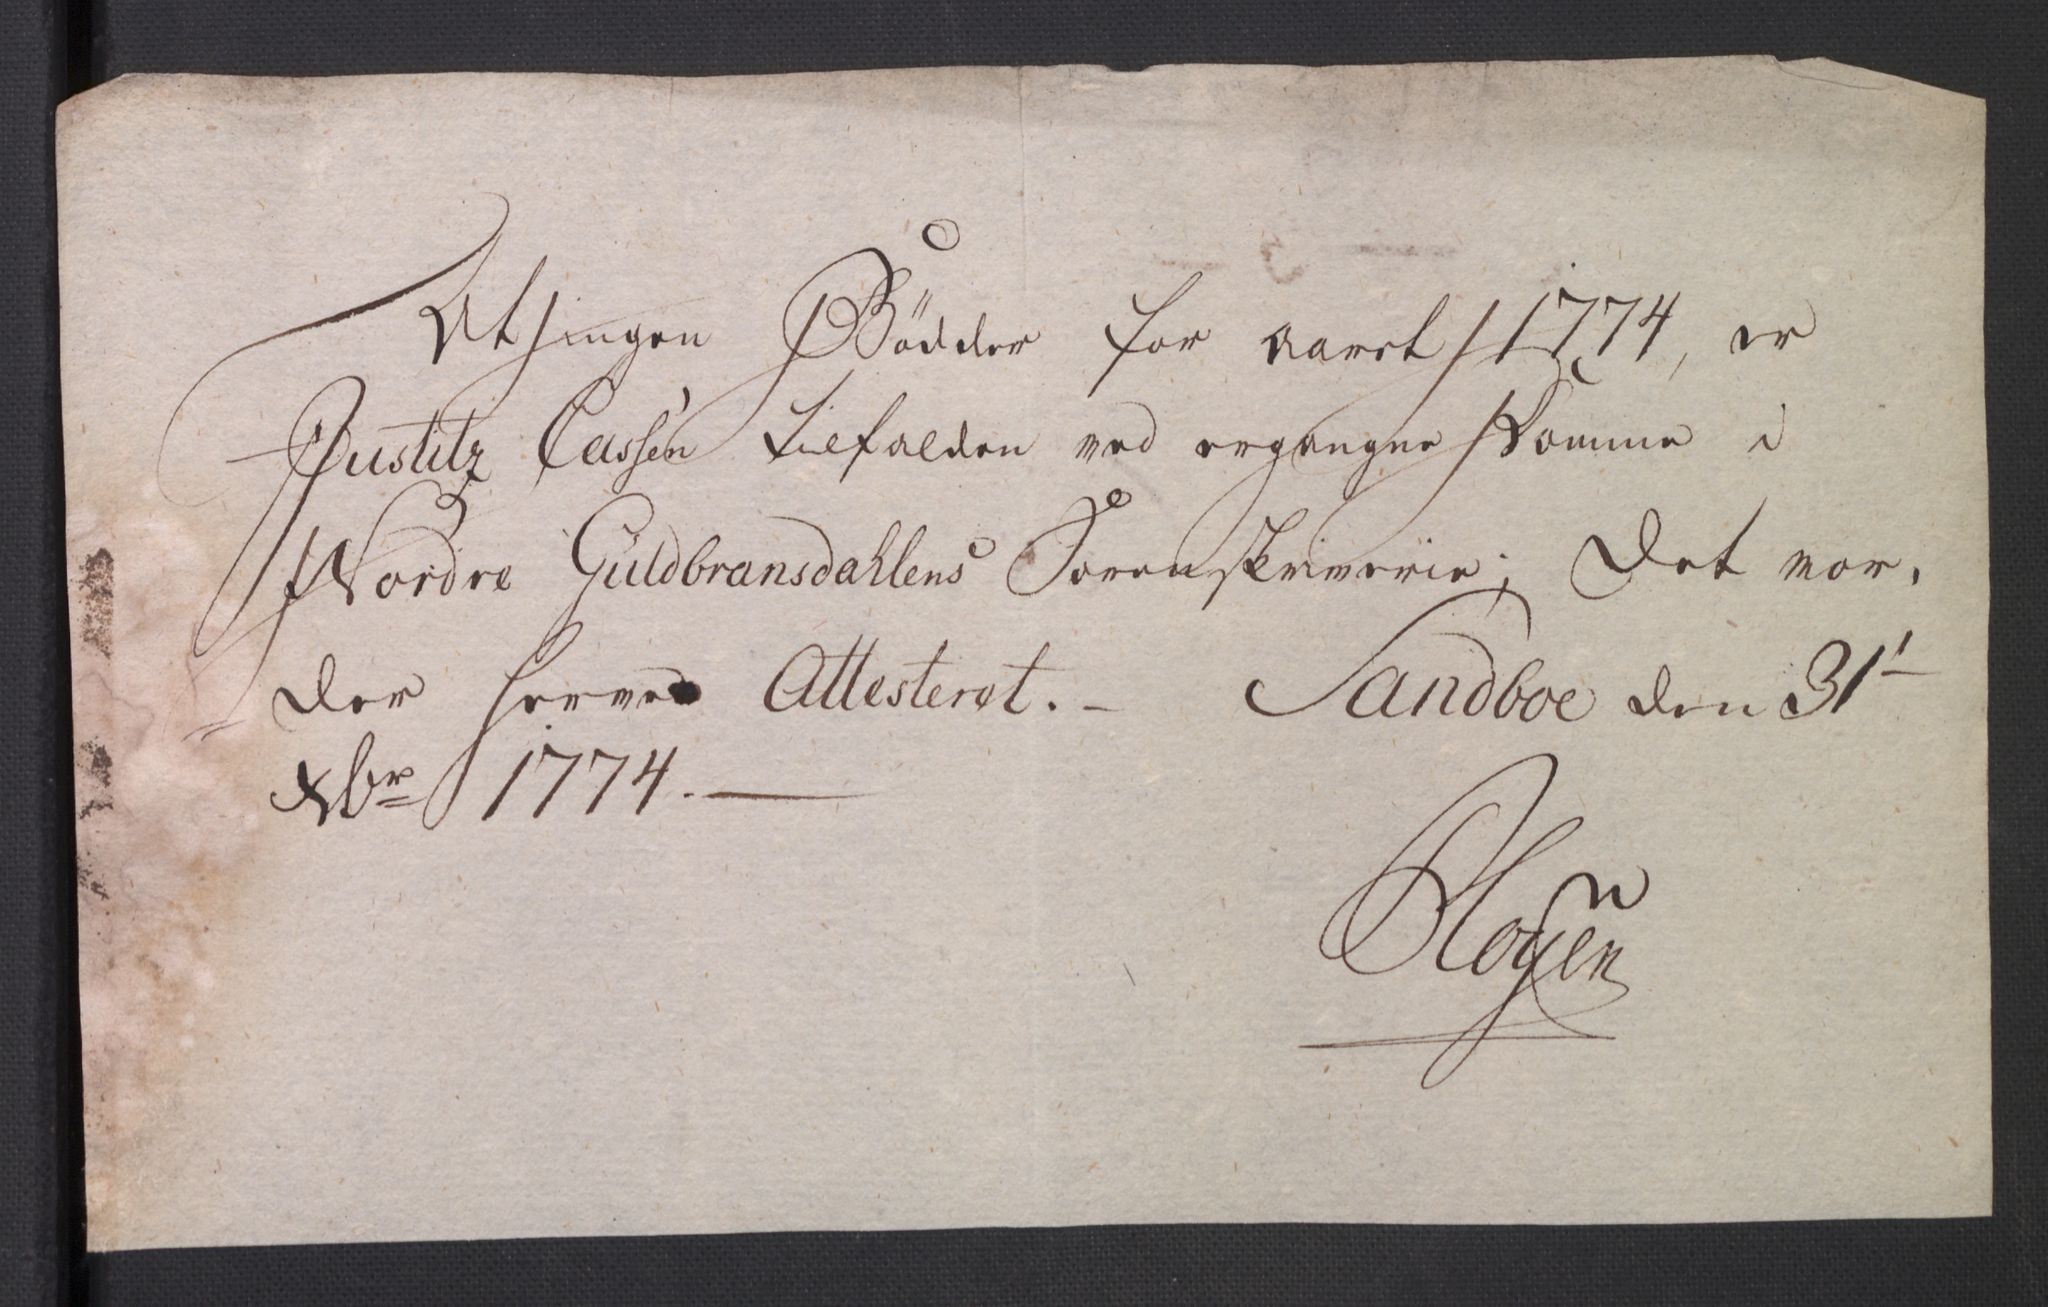 At ingen Bödder for aaret 1774, er
Justitz Cassen tilfalden ved ergangne Domme i
Nordre Guldbransdahlens Sorenskriverie; Det vor,
der herved Attesteret. - Sandboe den 31t
Xbr 1774. —